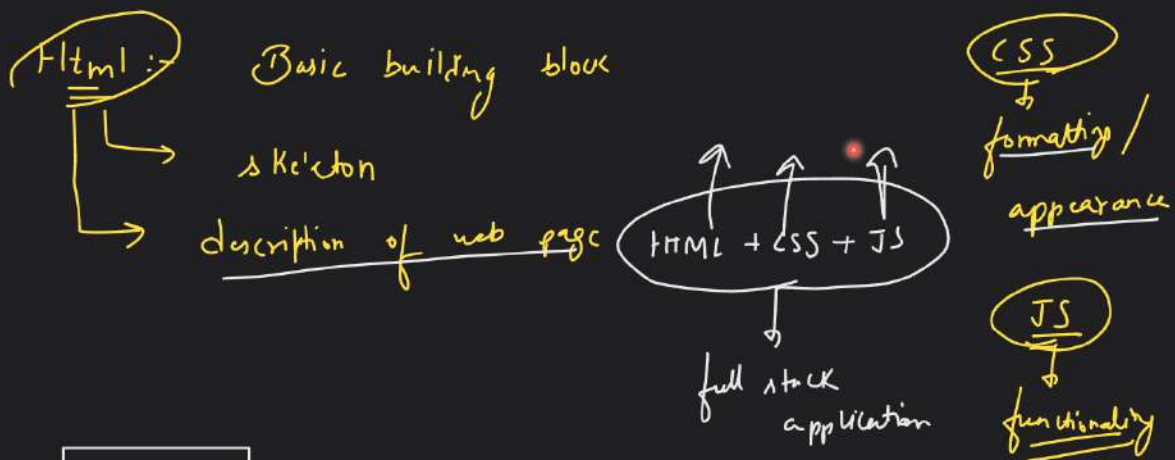 Html :- Basic building block
skeleton
description of web page
HTML + CSS + JS
full stack
application
CSS
formatting /
appearance
JS
functionality